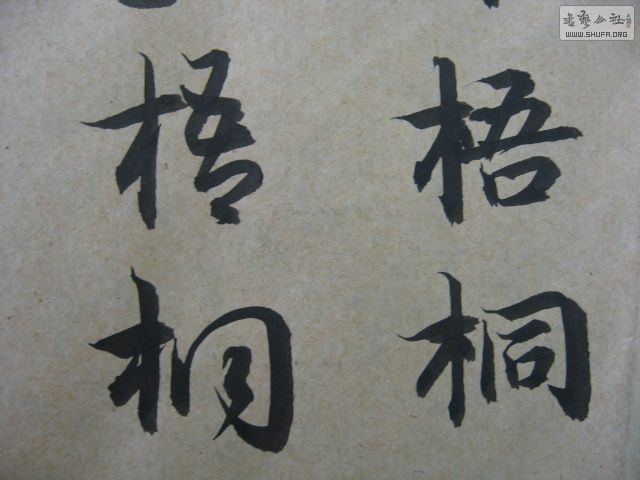 梧桐
梧桐
書藝公社
WWW.SHUFA.ORG